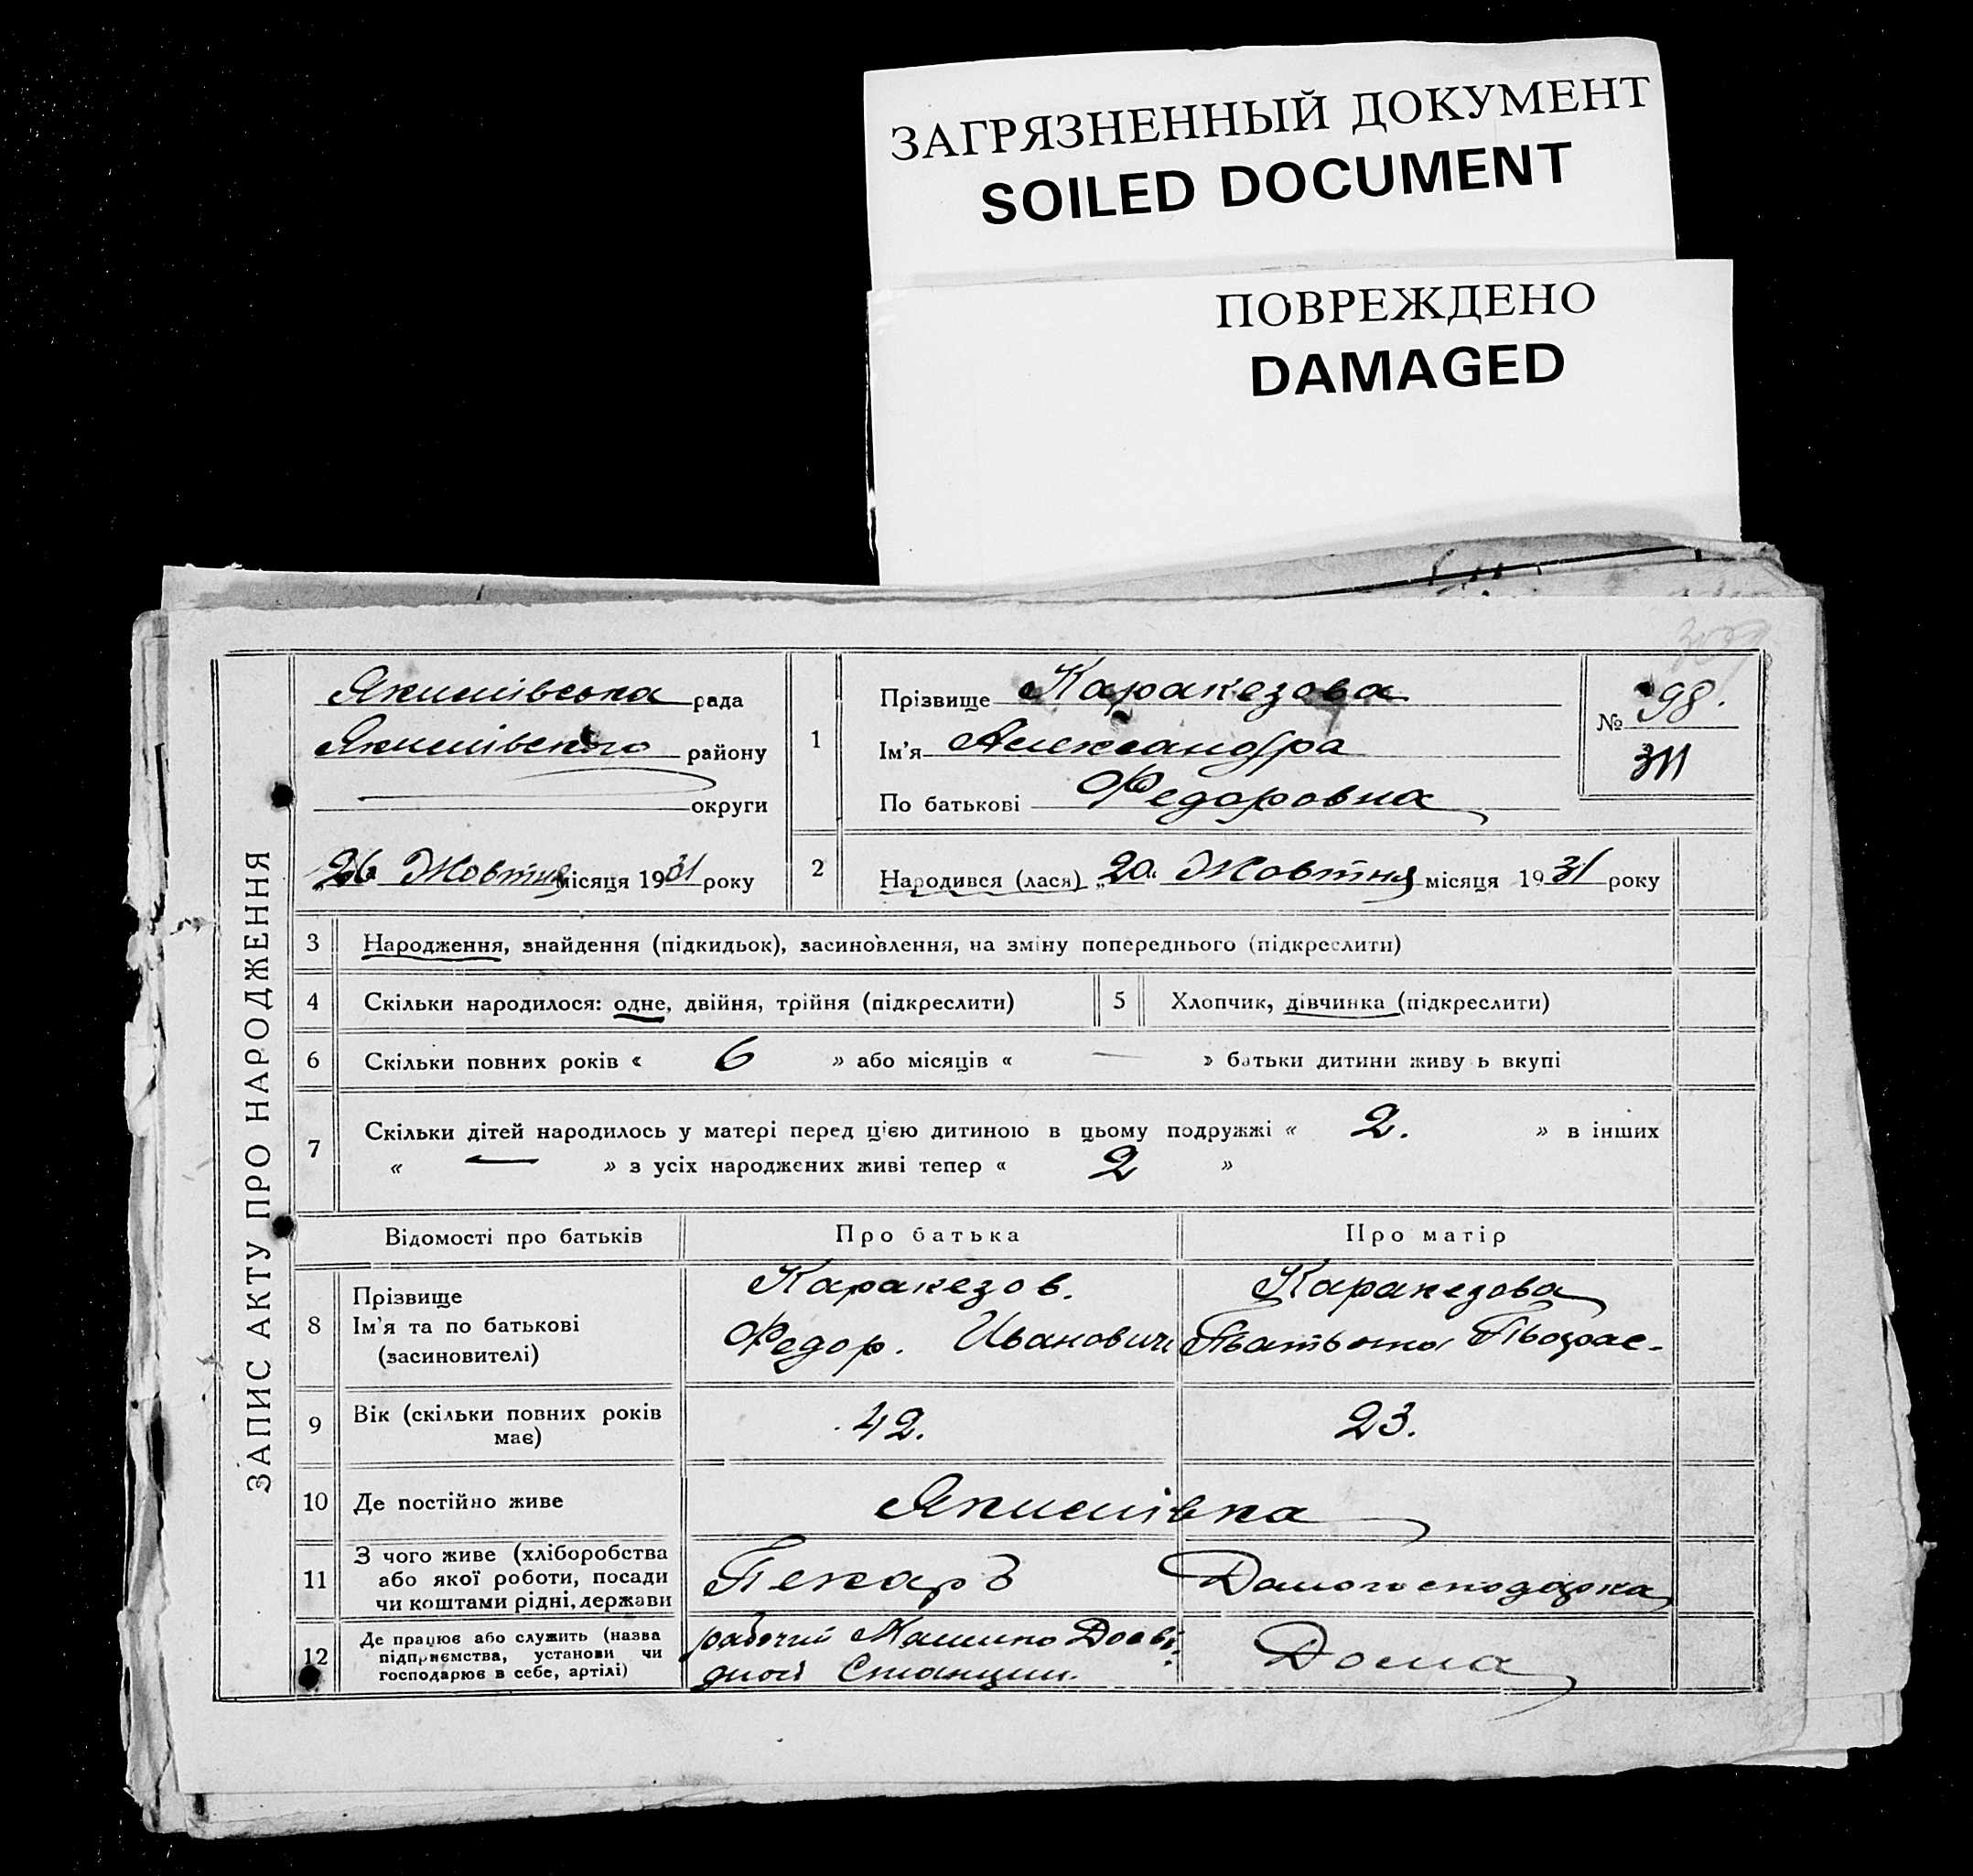 ЗАГРЯЗНЕННЫЙ ДОКУМЕНТ
SOILED DOCUMENT
ПОВРЕЖДЕНО
DAMAGED
ЗАПИС АКТУ ПРО НАРОДЖЕННЯ
Якимівська рада
Якимівського району
округи
26 Жовтня місяця 1931 року
1
Прізвище Каракезова
Ім'я Александра
По батькові Федоровна
№ 98.
311
2
Народився (лася) „20. Жовтня місяця 1931 року
3 Народження, знайдення (підкидьок), засиновлення, на зміну попереднього (підкреслити)
4 Скільки народилося: одне, двійня, трійня (підкреслити) 5 Хлопчик, дівчинка (підкреслити)
6 Скільки повних років « 6 » або місяців « — » батьки дитини живу ь вкупі
7 Скільки дітей народилось у матері перед цією дитиною в цьому подружжі « 2. » в інших
« — » з усіх народжених живі тепер « 2 »
Відомості про батьків Про батька Про матір
8 Прізвище
Ім'я та по батькові
(засиновителі)
Каракезов.
Федор. Иванович
Каракезова
Татьяна
9 Вік (скільки повних років
має)
42. 23.
10 Де постійно живе Якимівка
11 З чого живе (хліборобства
або якої роботи, посади
чи коштами рідні, держави
Пекарь Домогосподарка
12 Де працює або служить (назва
підприємства, установи чи
господарює в себе, артілі)
рабочий Машино Досві-
дної Станции.
Дома